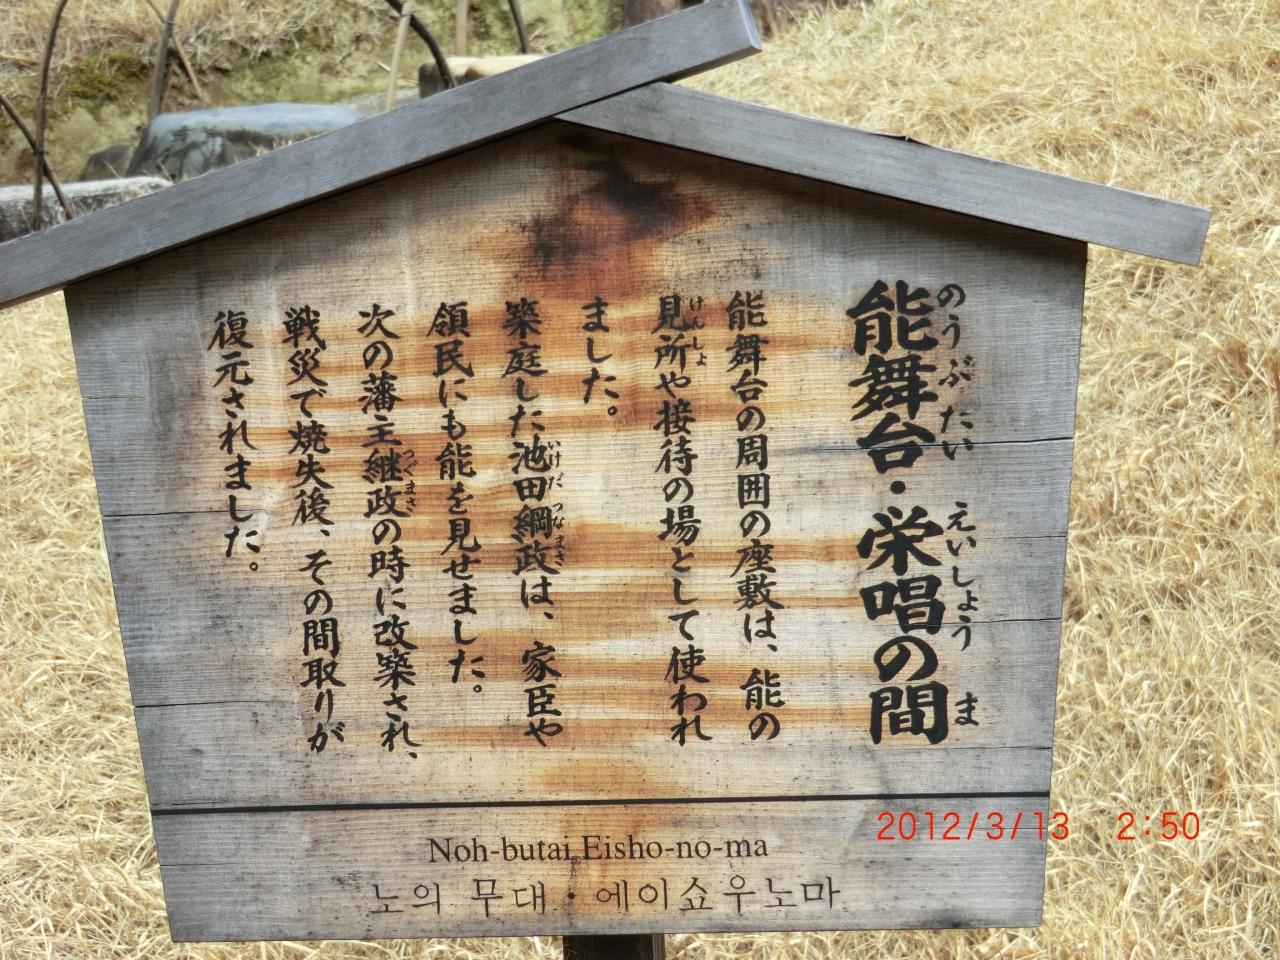 能舞台・栄唱の間
のうぶたい えいしょう ま
能舞台の周囲の座敷は、能の
見所や接待の場として使われ
けんしょ
ました。
築庭した池田綱政は、家臣や
いけだ つなまさ
領民にも能を見せました。
次の藩主継政の時に改築され、
つぐまさ
戦災で焼失後、その間取りが
復元されました。
Noh-butai,Eisho-no-ma
노의 무대・에이쇼우노마
2012/3/13 2:50